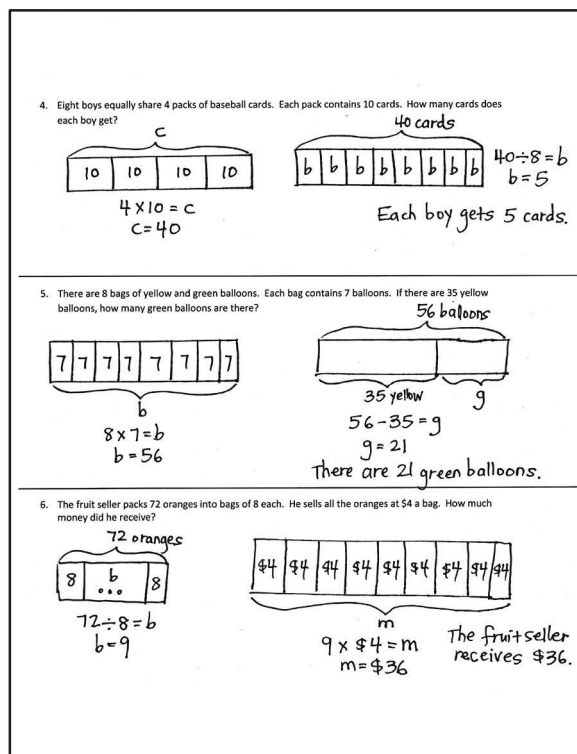 4. Eight boys equally share 4 packs of baseball cards. Each pack contains 10 cards. How many cards does
each boy get?
c
10 10 10 10
4 x 10 = c
c = 40
40 cards
b b b b b b b b
40÷8 = b
b = 5
Each boy gets 5 cards.
5. There are 8 bags of yellow and green balloons. Each bag contains 7 balloons. If there are 35 yellow
balloons, how many green balloons are there?
7 7 7 7 7 7 7 7
b
8 x 7 = b
b = 56
56 balloons
35 yellow g
56 - 35 = g
g = 21
There are 21 green balloons.
6. The fruit seller packs 72 oranges into bags of 8 each. He sells all the oranges at $4 a bag. How much
money did he receive?
72 oranges
8 b ... 8
72 ÷ 8 = b
b = 9
$4 $4 $4 $4 $4 $4 $4 $4 $4
m
9 x $4 = m
m = $36
The fruit seller
receives $36.